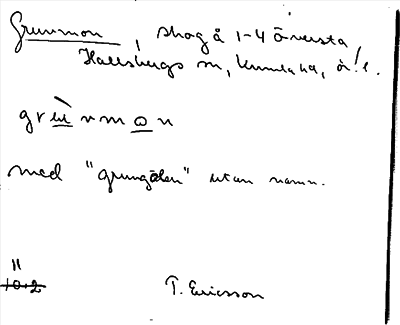 Grunmon, skog å 1-4 Översta,
Hallsbergs sn, Kumla hd, ö. l.
gru̇̀nmon
med "grungölen" utan namn.
11
10.2
T. Ericsson